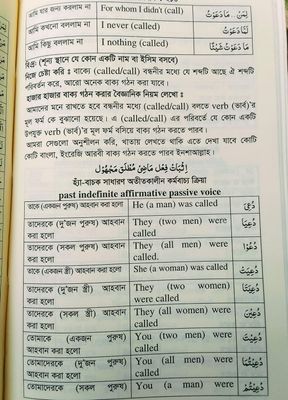 আমি যার জন্য করলাম না For whom I didn't (call) لِمَنْ. مَا دَعَوْتُ
আমি কখনো বললাম না I never (called) لَمَّا دَعَوْتُ
আমি কিছু বললাম না I nothing (called) مَا دَعَوْتُ شَيْئًا
বিদ্র: (শূন্য স্থানে যে কোন একটি নাম বা ইসিম বসবে)
নিজে চেষ্টা করি ঃ বাক্যে (called/call) বন্ধনীর মধ্যে যে শব্দটি আছে ঐ শব্দটি
পরিবর্তন করে, আরো অনেক বাক্য গঠন করতে পারি।
হাজার হাজার বাক্য গঠন করার বৈজ্ঞানিক নিয়ম লেখো ঃ
আমাদের মনে রাখতে হবে বন্ধনীর মধ্যে (called/call) বলতে verb (ভার্ব)'র
মূল ফর্ম কে বুঝানো হয়েছে। এ (called/call) এর পরিবর্তে যে কোন একটি
উপযুক্ত verb (ভার্ব)'র মূল ফর্ম বসিয়ে বাক্য গঠন করতে পারবো।
আমরা সেগুলো অনুশীলন করি, খাতায় লেখতে থাকি এতে দেখা যাবে কোটি
কোটি বাংলা, ইংরেজি আরবী বাক্য গঠন করতে পারব ইনশাআল্লাহ।
اِثْبَاتْ فِعْل مَاضِىْ مُطْلَقْ مَجْهُوْل
হ্যাঁ-বাচক সাধারণ অতীতকালীন কর্মবাচ্য ক্রিয়া
past indefinite affirmative passive voice
তাকে (একজন পুরুষ) আহবান করা হলো He (a man) was called دُعِىَ
তাদেরকে (দু'জন পুরুষ) আহবান করা হলো They (two men) were called دُعِيَا
তাদেরকে (সকল পুরুষ) আহবান করা হলো They (all men) were called. دُعُوْا
তাকে (একজন স্ত্রী) আহবান করা হলো She (a woman) was called دُعِيَتْ
তাদেরকে (দু'জন স্ত্রী) আহবান করা হলো They (two women) were called دُعِيَتَا
তাদেরকে (সকল স্ত্রী) আহবান করা হলো They (all women) were called دُعِيْنَ
তোমাকে (একজন পুরুষ) আহবান করা হলো You (two men) were called دُعِيْتَ
তোমাদেরকে (দু'জন পুরুষ) আহবান করা হলো You (all men) were called دُعِيْتُمَا
তোমাদেরকে (সকল পুরুষ) You (a man) were دُعِيْتُمْ